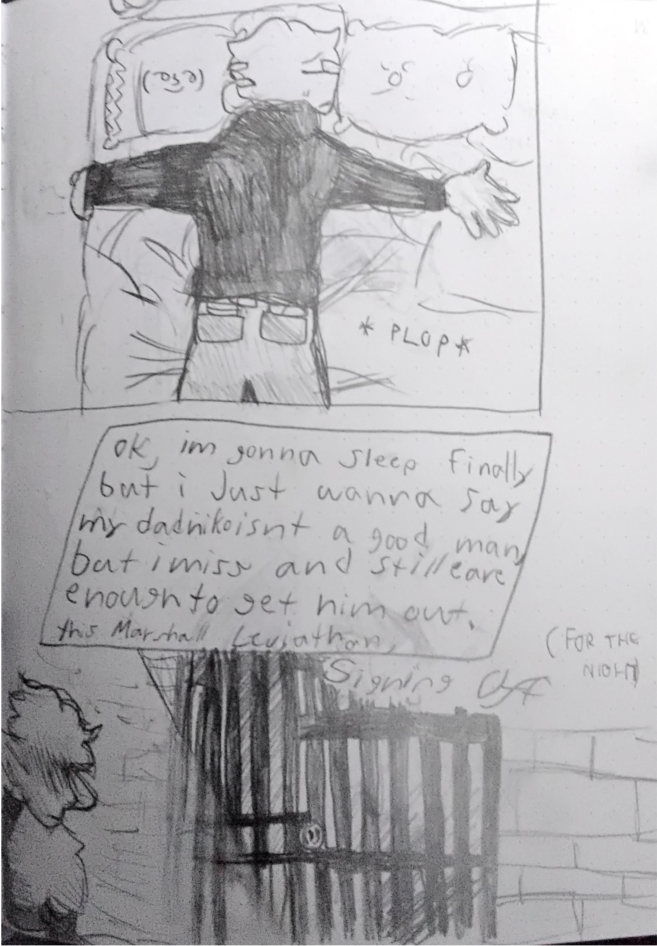 * PLOP *
ok, im gonna sleep finally
but i Just wanna say
my dad niko isnt a good man,
but i miss and still care
enough to get him out.
this Marshall Leviathan,
Signing Off
(FOR THE
NIGHT)